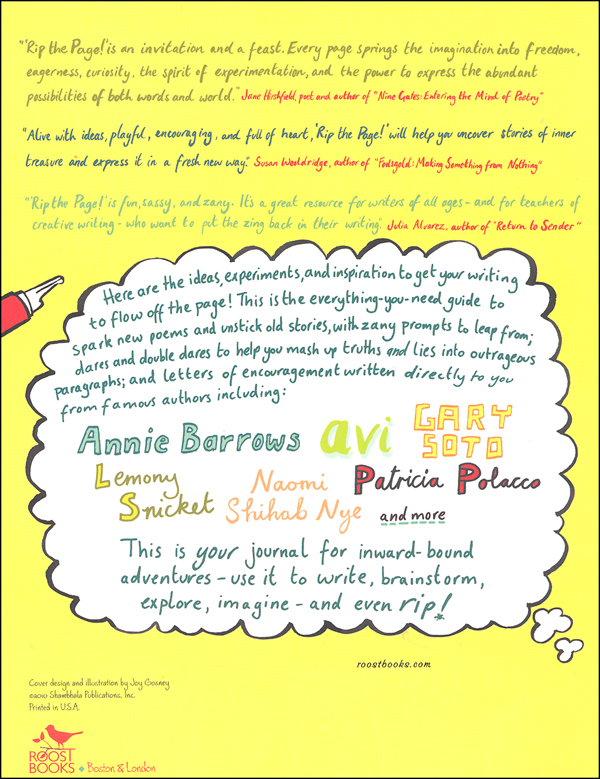 "'Rip the Page!' is an invitation and a feast. Every page springs the imagination into freedom,
eagerness, curiosity, the spirit of experimentation, and the power to express the abundant
possibilities of both words and world." Jane Hirshfield, poet and author of "Nine Gates: Entering the Mind of Poetry"
"Alive with ideas, playful, encouraging, and full of heart, 'Rip the Page!' will help you uncover stories of inner
treasure and express it in a fresh new way." Susan Wooldridge, author of "Foolsgold: Making Something from Nothing"
"'Rip the Page!' is fun, sassy, and zany. It's a great resource for writers of all ages - and for teachers of
creative writing - who want to put the zing back in their writing." Julia Alvarez, author of "Return to Sender"
Here are the ideas, experiments, and inspiration to get your writing
to flow off the page! This is the everything-you-need guide to
spark new poems and unstick old stories, with zany prompts to leap from;
dares and double dares to help you mash up truths and lies into outrageous
paragraphs; and letters of encouragement written directly to you
from famous authors including:
Annie Barrows avi GARY
SOTO
Lemony
Snicket
Naomi
Shihab Nye
Patricia Polacco
and more
This is your journal for inward-bound
adventures - use it to write, brainstorm,
explore, imagine - and even rip!
roostbooks.com
Cover design and illustration by Joy Gosney
©2010 Shambhala Publications, Inc.
Printed in U.S.A.
ROOST
BOOKS Boston & London